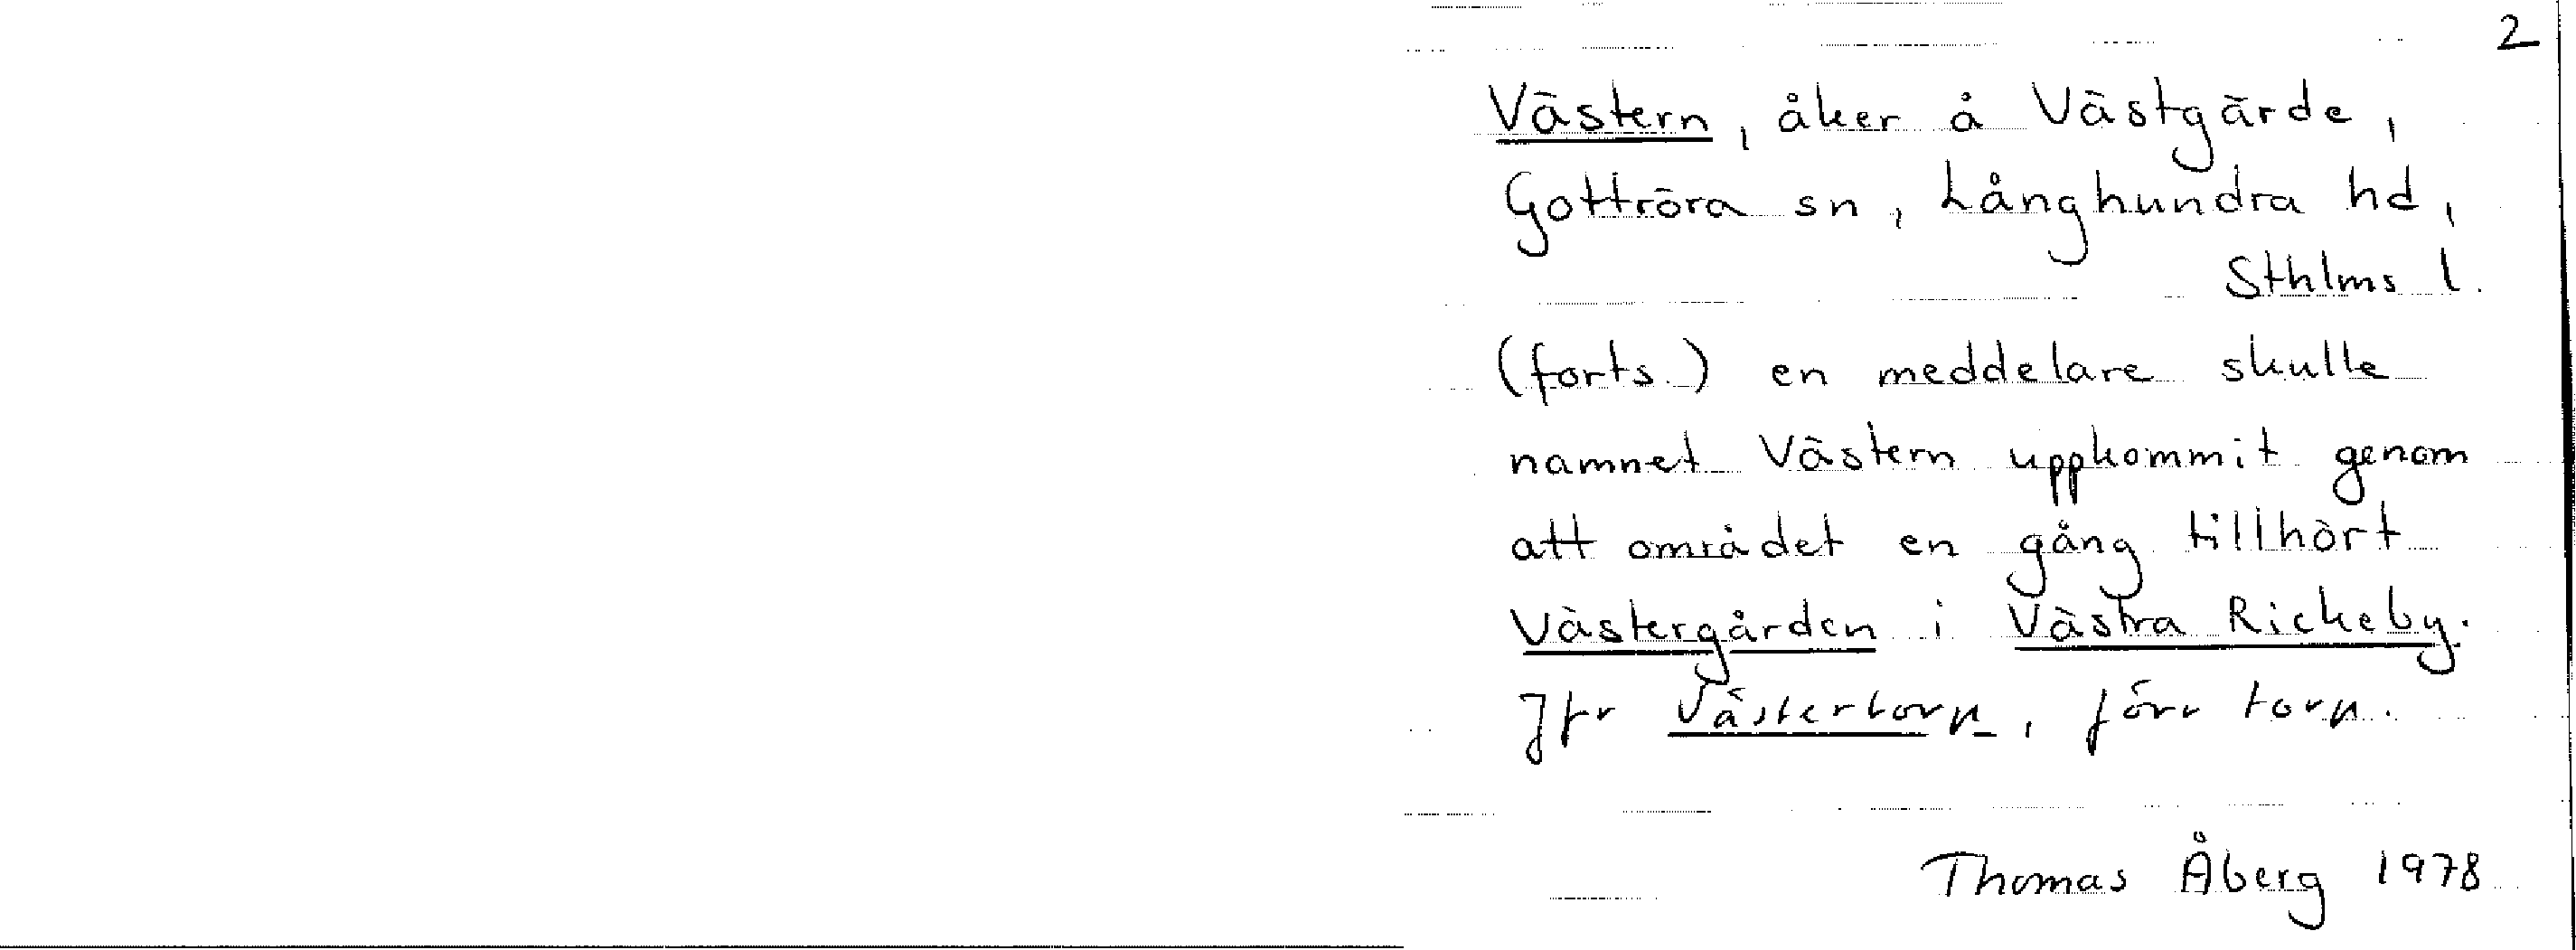 2
Västern, åker å Västgärde,
Gottröra sn, Långhundra hd,
Sthlms l.
(forts.) en meddelare skulle
namnet Västern uppkommit genom
att området en gång tillhört
Västergården i Västra Rickeby.
Jfr Västertorp, förr torp.
Thomas Åberg 1978